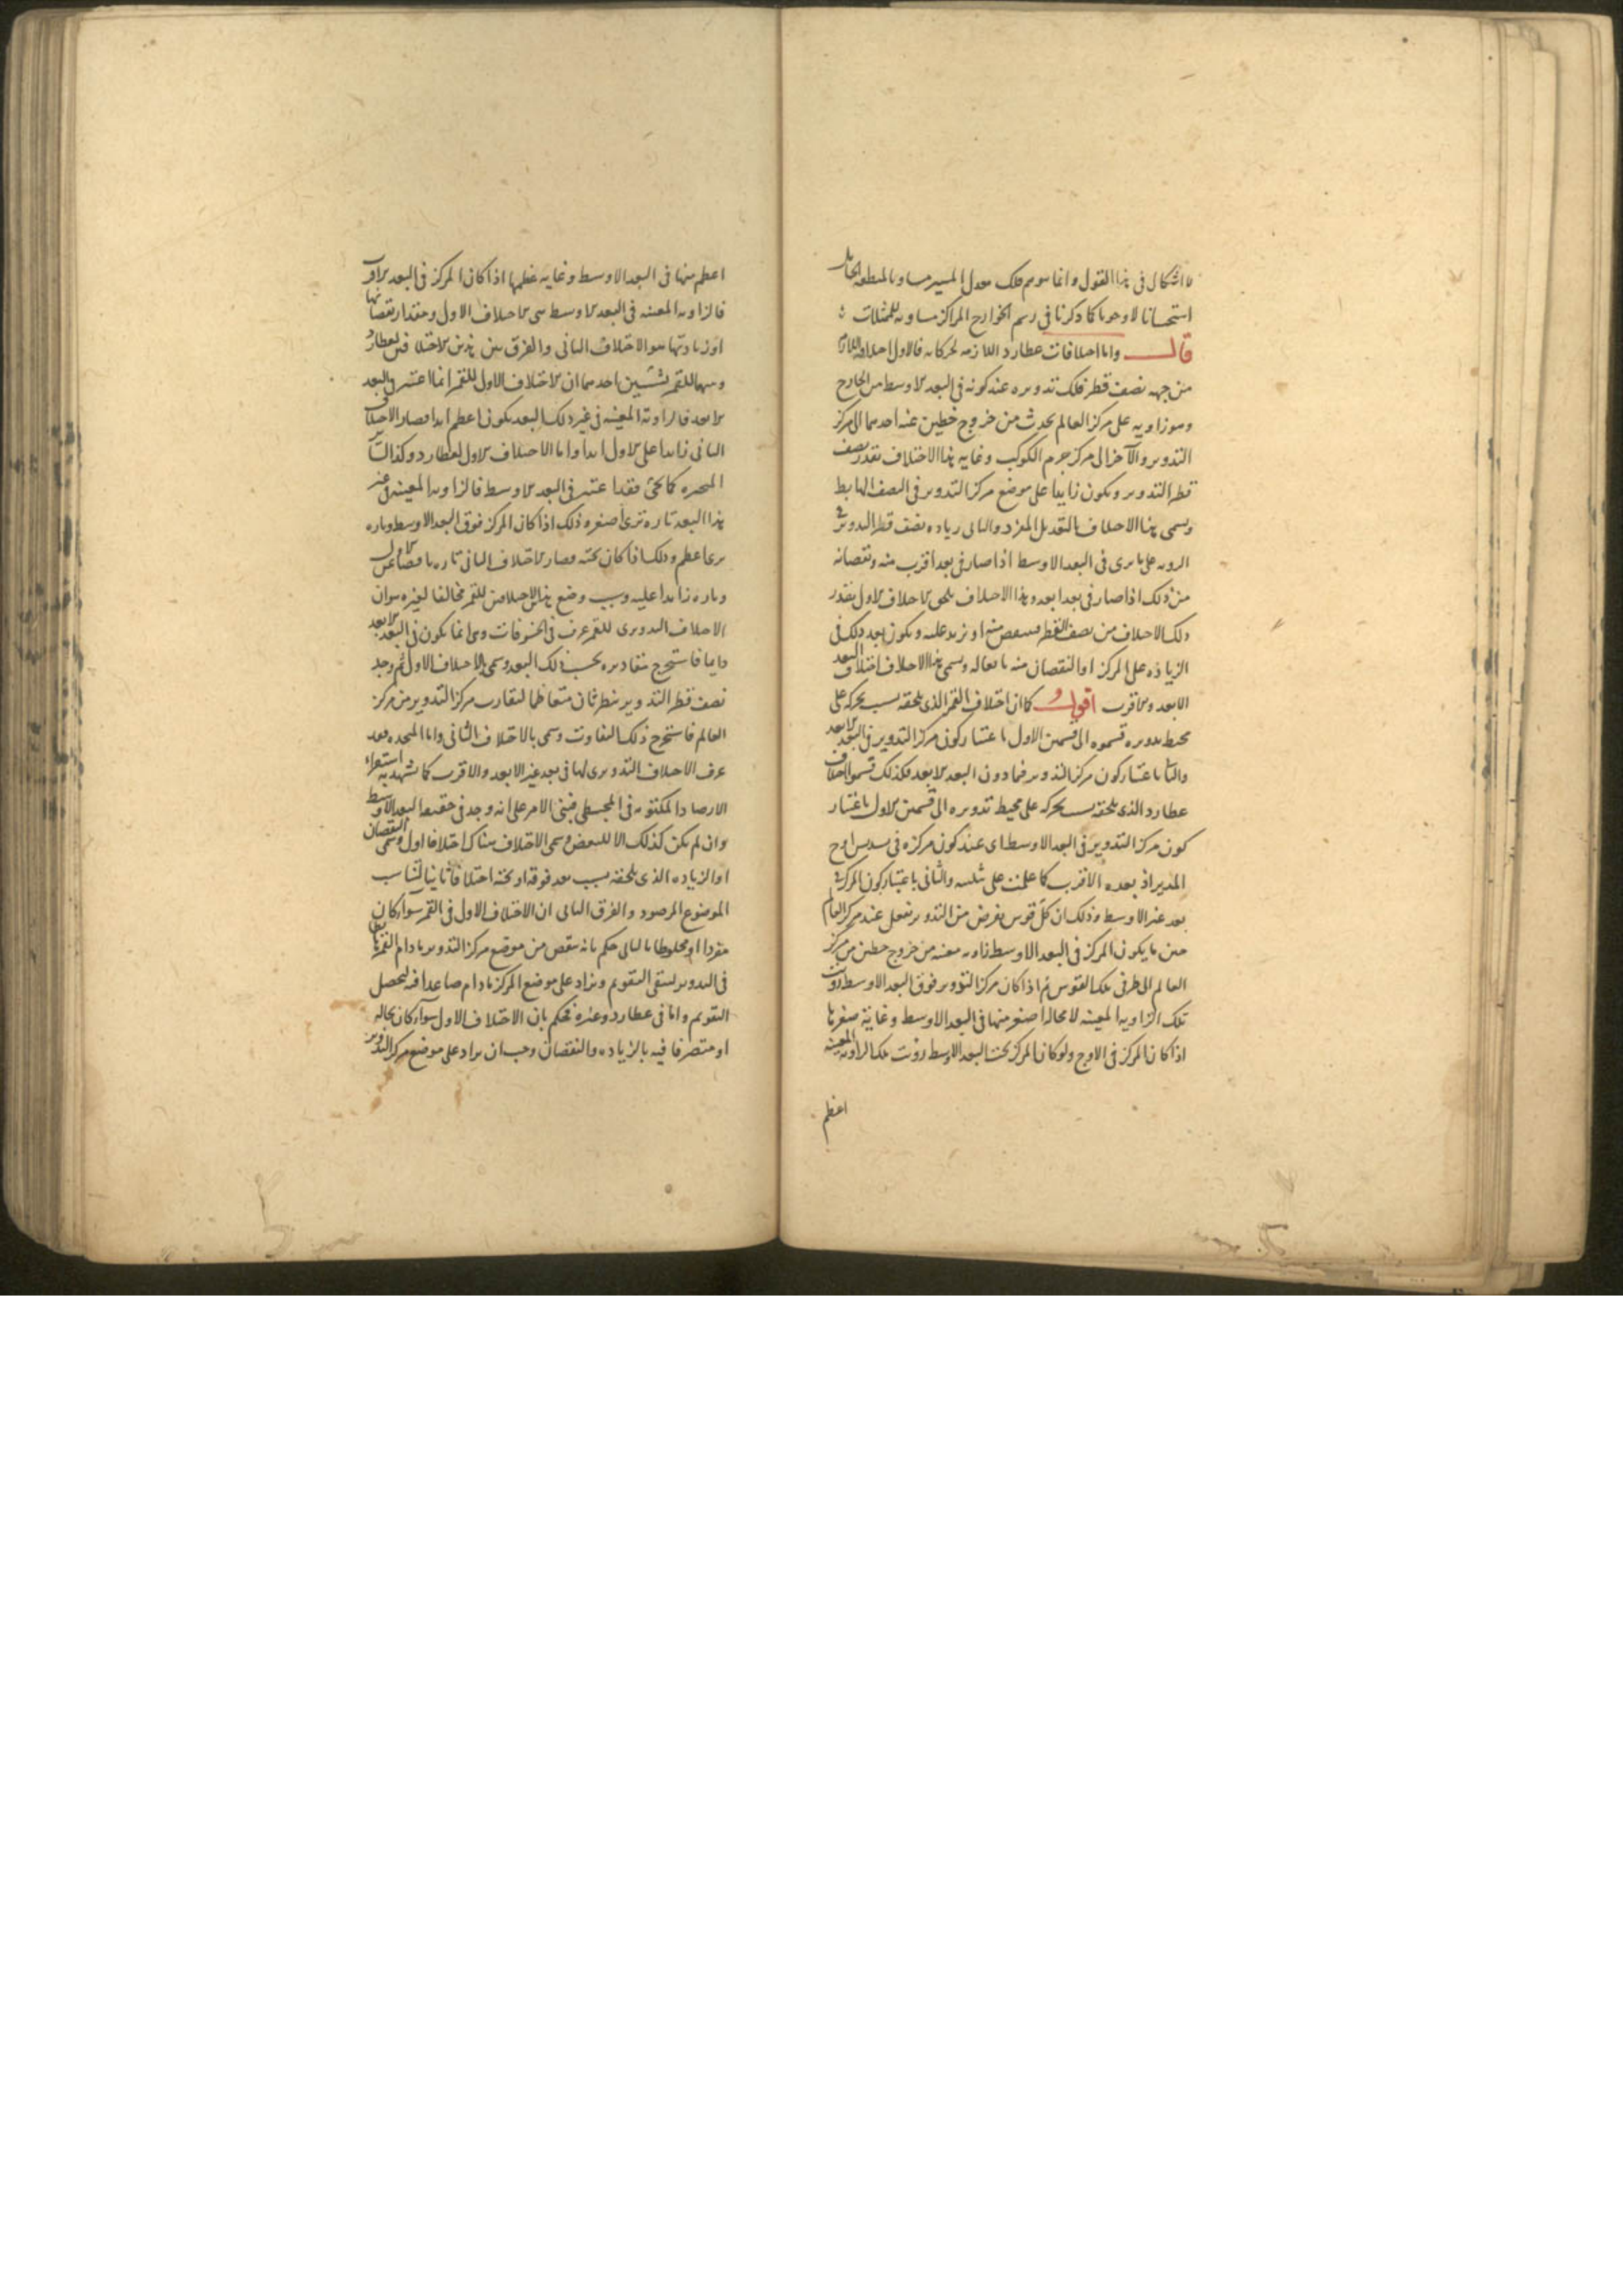 لا اشكال فى هذا القول وانما توهم فلك معدل المسير مساويا لمنطقة الحامل
استحسانا لا وجوبا كما ذكرنا فى رسم الخوارج المراكز مساوية للممثلات
قال واما اختلافات عطارد اللازمة لحركاته فالاول اختلافه اللازم
من جهة نصف قطر فلك تدويره عند كونه فى البعد الاوسط من الخارج
وهو زاوية على مركز العالم تحدث من خروج خطين عنه احدهما الى مركز
التدوير والآخر الى مركز جرم الكوكب وغاية هذا الاختلاف بقدر نصف
قطر التدوير ويكون زايدا على موضع مركز التدوير فى النصف الهابط
ويسمى هذا الاختلاف بالتعديل المفرد والثانى زيادة نصف قطر التدوير فى
الرؤية على ما يرى فى البعد الاوسط اذا صار فى بعد اقرب منه ونقصانه
من ذلك اذا صار فى بعد ابعد وهذا الاختلاف يلحق الاختلاف الاول بقدر
ذلك الاختلاف من نصف القطر فينقص منه او يزيد عليه ويكون بعد ذلك فى
الزيادة على المركز او النقصان منه بحاله ويسمى هذا الاختلاف اختلاف البعد
الابعد والاقرب اقول كما ان اختلاف القمر الذى يلحقه بسبب تحركه على
محيط تدويره قسموه الى قسمين الاول باعتبار كون مركز التدوير فى البعد الابعد
والثانى باعتبار كون مركز التدوير فيما دون البعد الابعد فكذلك قسموا اختلاف
عطارد الذى يلحقه بسبب تحركه على محيط تدويره الى قسمين الاول باعتبار
كون مركز التدوير فى البعد الاوسط اى عند كون مركزه فى تسديس اوج
المدير اذ بعده الاقرب كما علمت على تثليثه والثانى باعتبار كون المركز فى
بعد غير الاوسط وذلك ان كل قوس يفرض من التدوير تفعل عند مركز العالم
حين ما يكون المركز فى البعد الاوسط زاوية معينة من خروج خطين من مركز
العالم الى طرفى تلك القوس ثم اذا كان مركز التدوير فوق البعد الاوسط رؤيت
تلك الزاوية المعينة لا محالة اصغر منها فى البعد الاوسط وغاية صغرها
اذا كان المركز فى الاوج ولو كان المركز تحت البعد الاوسط رؤيت تلك الزاوية المعينة
اعظم
اعظم منها فى البعد الاوسط وغاية عظمها اذا كان المركز فى البعد الاقرب
فالزاوية المعينة فى البعد الاوسط هى الاختلاف الاول ومقدار نقصانها
او زيادتها هو الاختلاف الثانى والفرق بين هذين الاختلافين لعطارد
وبينهما للقمر بشيئين احدهما ان الاختلاف الاول للقمر انما اعتبر فى البعد
الابعد فالزاوية المعينة فى غير ذلك البعد يكون اعظم ابدا فصار الاختلاف
الثانى زايدا على الاول ابدا واما الاختلاف الاول لعطارد وكذا لسائر
المتحيرة كما يجئ فقد اعتبر فى البعد الاوسط فالزاوية المعينة فى غير
هذا البعد تارة ترى اصغر وذلك اذا كان المركز فوق البعد الاوسط وتارة
يرى اعظم وذلك اذا كان تحته فصار الاختلاف الثانى تارة ناقصا عن الاول
وتارة زايدا عليه وسبب وضع هذين الاختلافين للقمر مخالفا لغيره هو ان
الاختلاف التدويرى للقمر عرف فى الخسوفات وهى انما يكون فى البعد الابعد
دايما فاستخرج مقاديره بحسب ذلك البعد وسمى بالاختلاف الاول ثم وجد
نصف قطر التدوير ينظر ثان متعاظما لتقارب مركز التدوير من مركز
العالم فاستخرج ذلك التفاوت وسمى بالاختلاف الثانى واما المتحيرة فقد
عرف الاختلاف التدويرى لها فى بعد غير الابعد والاقرب كما يشهد به استقراء
الارصاد المكتوبة فى المجسطى فبنى الامر على انه وجد فى حقيقة البعد الاوسط
وان لم يكن كذلك الا للبعض وسمى الاختلاف هناك اختلافا اول وسمى النقصان
او الزيادة الذى يلحقه بسبب بعد فوقه او تحته اختلافا ثانيا لتناسب
الموضوع المرصود والفرق الثانى ان الاختلاف الاول فى القمر سواء كان
مفردا او مخلوطا بالثانى حكم بانه ينقص من موضع مركز التدوير ما دام القمر هابطا
فى التدوير لبتقى التقويم ويزاد على موضع المركز ما دام صاعدا فيه ليحصل
التقويم واما فى عطارد وغيره فحكم بان الاختلاف الاول سواء كان بحاله
او متصرفا فيه بالزيادة والنقصان وجب ان يزاد على موضع مركز التدوير